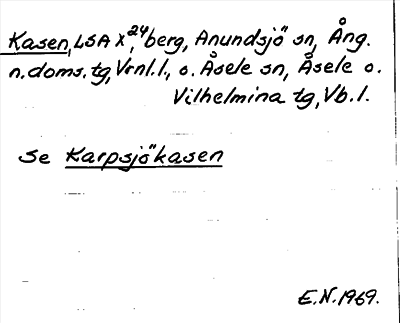 Kasen, LSA X, 24, berg, Anundsjö sn, Ång.
n. doms. tg, Vrnl. l., o. Åsele sn, Åsele o.
Vilhelmina tg, Vb. l.
Se Karpsjökasen
E.N. 1969.